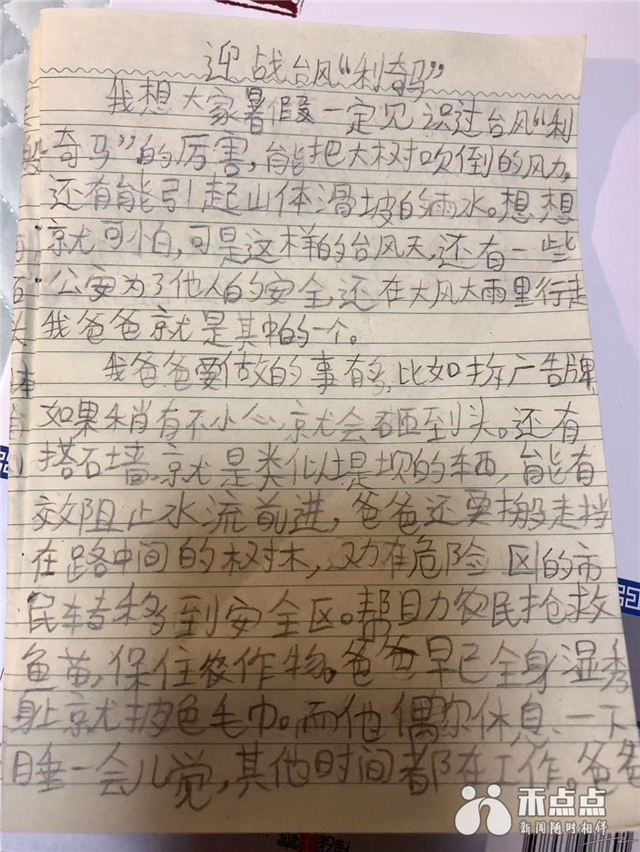 迎战台风“利奇马”
我想大家暑假一定见识过台风“利
奇马”的厉害,能把大树吹倒的风力,
还有能引起山体滑坡的雨水。想想
就可怕,可是这样的台风天,还有一些
公安为了他人的安全,还在大风大雨里行走
我爸爸就是其中的一个。
我爸爸要做的事有多,比如拆广告牌,
如果稍有不小心,就会砸到头。还有
搭石墙,就是类似堤坝的东西,能有
效阻止水流前进,爸爸还要搬走挡
在路中间的树木,劝有危险区的市
民转移到安全区。帮助农民抢救
鱼苗,保住农作物。爸爸早已全身湿秀
身上就披色毛巾。而他偶尔休息一下
睡一会儿觉,其他时间都在工作。爸爸
禾点点
新闻随时相伴